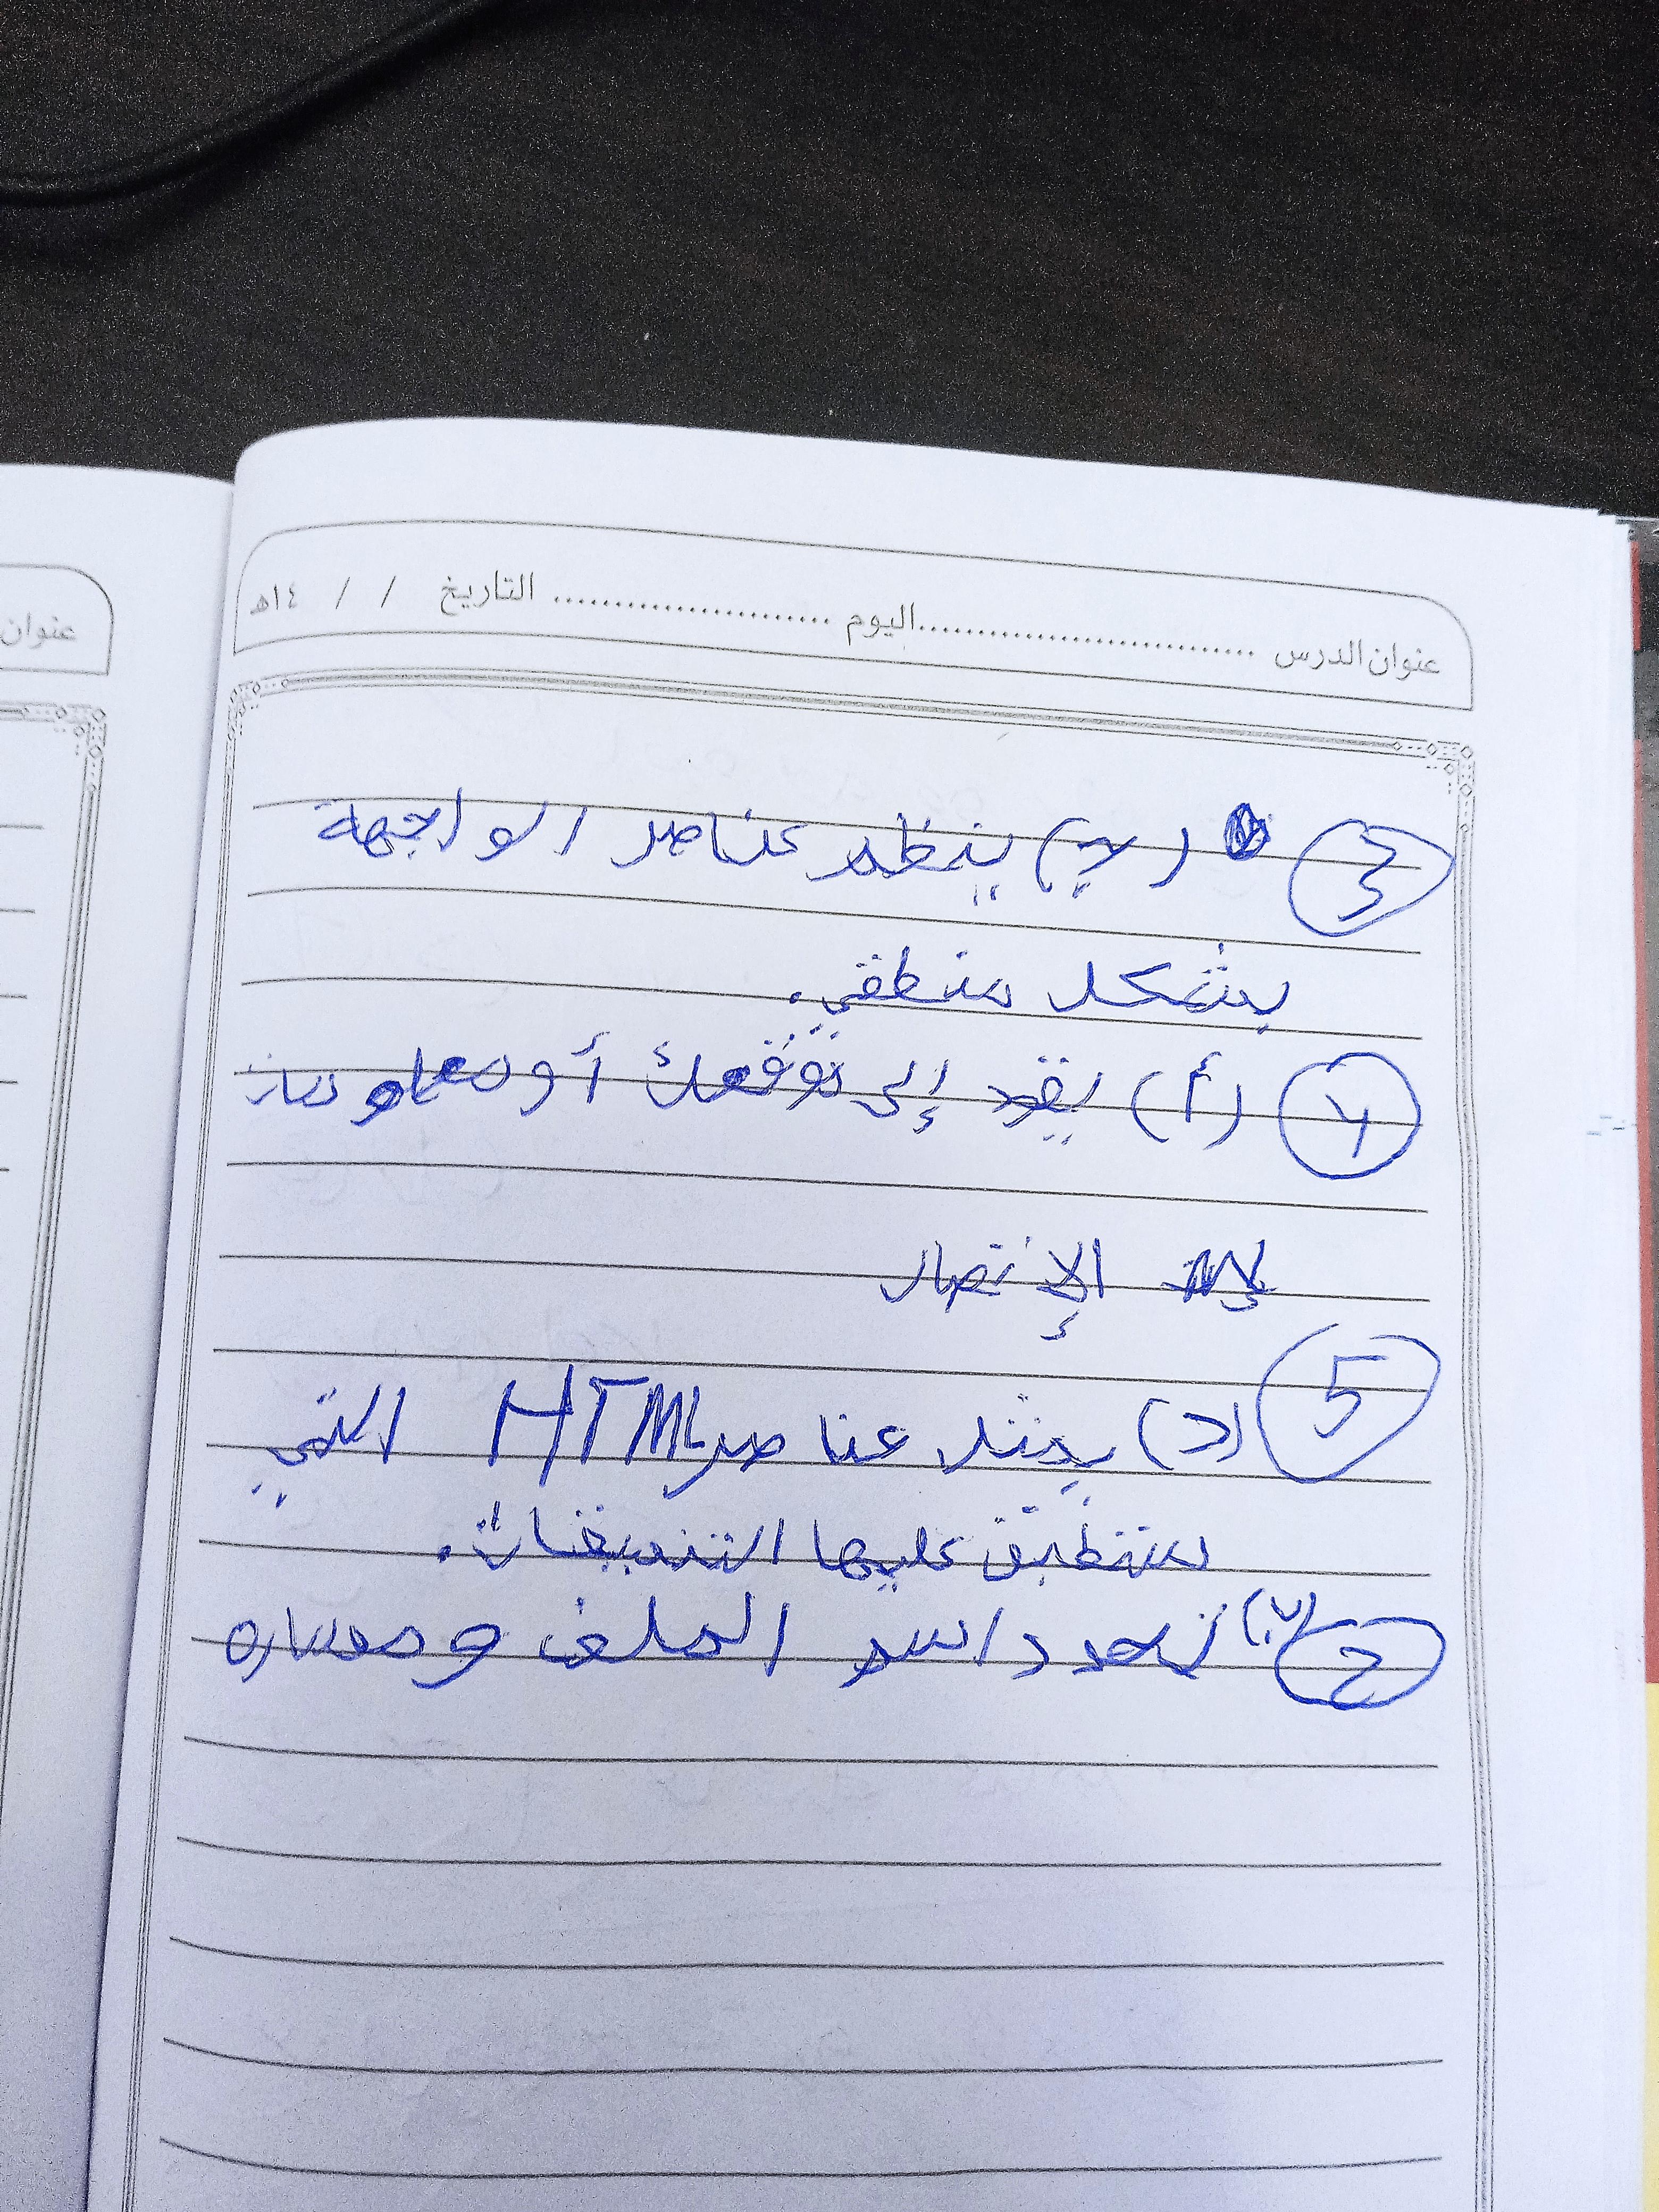 عنوان الدرس ........................... اليوم ........................ التاريخ / / ١٤هـ
عنوان
3 (ج) ينظم عناصر الواجهة
بشكل منطقي.
4 (أ) يقود إلى توقعك أو معلومات
الإتصال
5 (د) يمثل عناصر HTML التي
ستطبق عليها التنسيقات.
(ب) نحدد اسم الملف ومساره